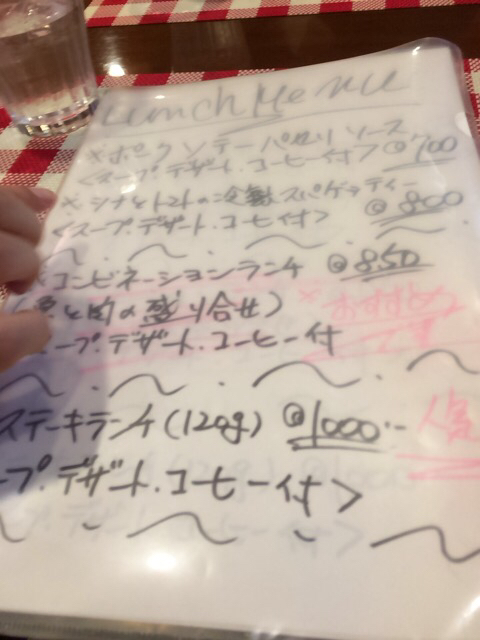 Lunch Menu
×ポークソテー バルサソース
<スープ.デザート.コーヒー付> @700
×シナとトマトの冷製スパゲッティー
<スープ.デザート.コーヒー付> @800
コンビネーションランチ @850
魚と肉の盛り合せ) ×おすすめ
ープ.デザート.コーヒー付
ステーキランチ(120g) @1000.- 人気
ープ.デザート.コーヒー付>